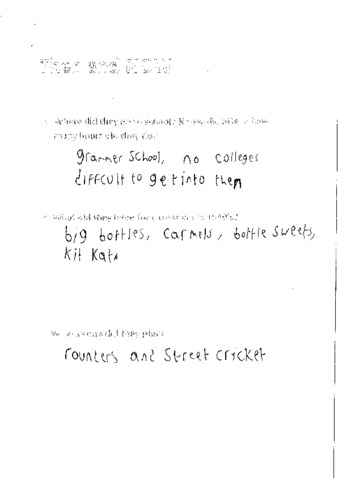 Then and NOW
Where did they go to school?
many hours did they do?
grammer School, no colleges
difficult to get into them
What did they have
big bottles, Carmels, bottle sweets,
Kit Kats
did they play?
rounters and Street Cricket